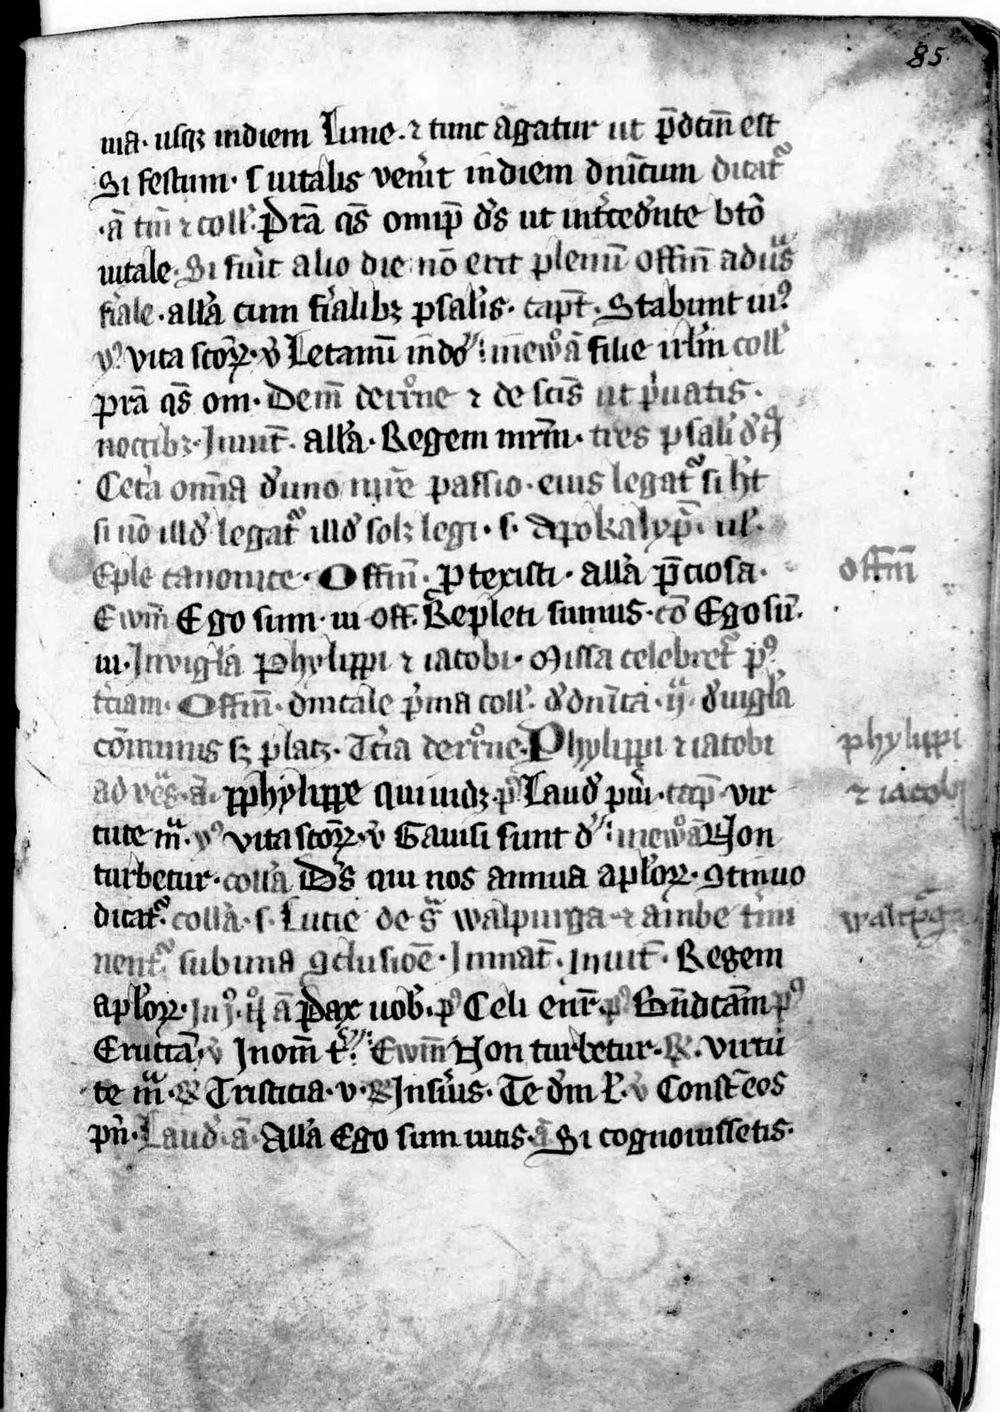 85
ma. usqʒ indiem Lune. ⁊ tunc agatur ut p̄dcm̄ est
Si festum. s. uitalis ven̾it indiem dn̄icum dicat᷑
.ā tm̄ ⁊ coll̾. Prā qs̄ omip̄ ds̄ ut int̾cedn̾te bt̄o
uitale. Si fu̾it alio die nō erit plenū offm̄ adu̾s
fi̾ale. all̾a cum fi̾alibʒ psal̾is. capt̄. Stabunt iu᷒
v̾᷒ vita sc̄oꝝ. v̾ Letamī indo̾. inew̄ ā filie irl̄m coll̾
prā qs̄ om. Dem̄ de r̾o̾ne ⁊ de sc̄is ut p̾uatis.
noctibʒ. Inuit̄. all̾a. Regem mr̄m. tres psal̾
Cet̾a om̄ia d̾uno m̾r̄e passio. eius legat᷑ si h̾t
si nō ill̾d legat᷑ ill̾d solʒ legi. s. Apokalyp̄. ul̾.
Ep̄le canonice. Offm̄. Protexisti. all̾a p̄ciosa.
Ewm̄ Ego sum. iu off. Repleti sumus. cō Ego sū.
iu. Inuigl̾a Phylippi ⁊ iacobi. Missa celebret᷑ p᷒
t̾ciam. Offm̄. dn̄icale p̾ma coll̾. d̾dn̄ica. ij. d̾uigl̾a
cōmunis sʒ platʒ. Tc̾ia de r̾o̾ne. Phylippi ⁊ iacobi
ad ve̾s. ā. Phylippe qui uidʒ. p̾᷒ Laud̾ pu̾i. cap̄ vir
tute m̾. v᷒ vita sc̄oꝝ. v̾ Gauisi sunt d̾. inew̄ ā Non
turbetur. coll̾a Ds̄ qui nos annua apl̾oꝝ. ꝯtinuo
dicat᷑. coll̾a. s. Lucie de s̄ walpurga ⁊ ambe t̾mi
nent᷑ subuna ꝯclusiōe. Inmat̄. Inuit̄. Regem
apl̾oꝝ. In j᷒. ā Pax uob̾. p᷒ Celi enr̄. p᷒ Bn̄dcam̄ p᷒
Eructā. v̾ Inom̄ t̾. Ewm̄ Non turbetur. ℟. virtu
te m̾. ℟ Tristicia. v. ℟ Insu̾is. Te dm̄ l̾. v̾ Const̄ eos
pn̾. Laud̾. ā. All̾a Ego sum uitis. ā Si cognouissetis.
Offm̄
phylippi
⁊ iacobi